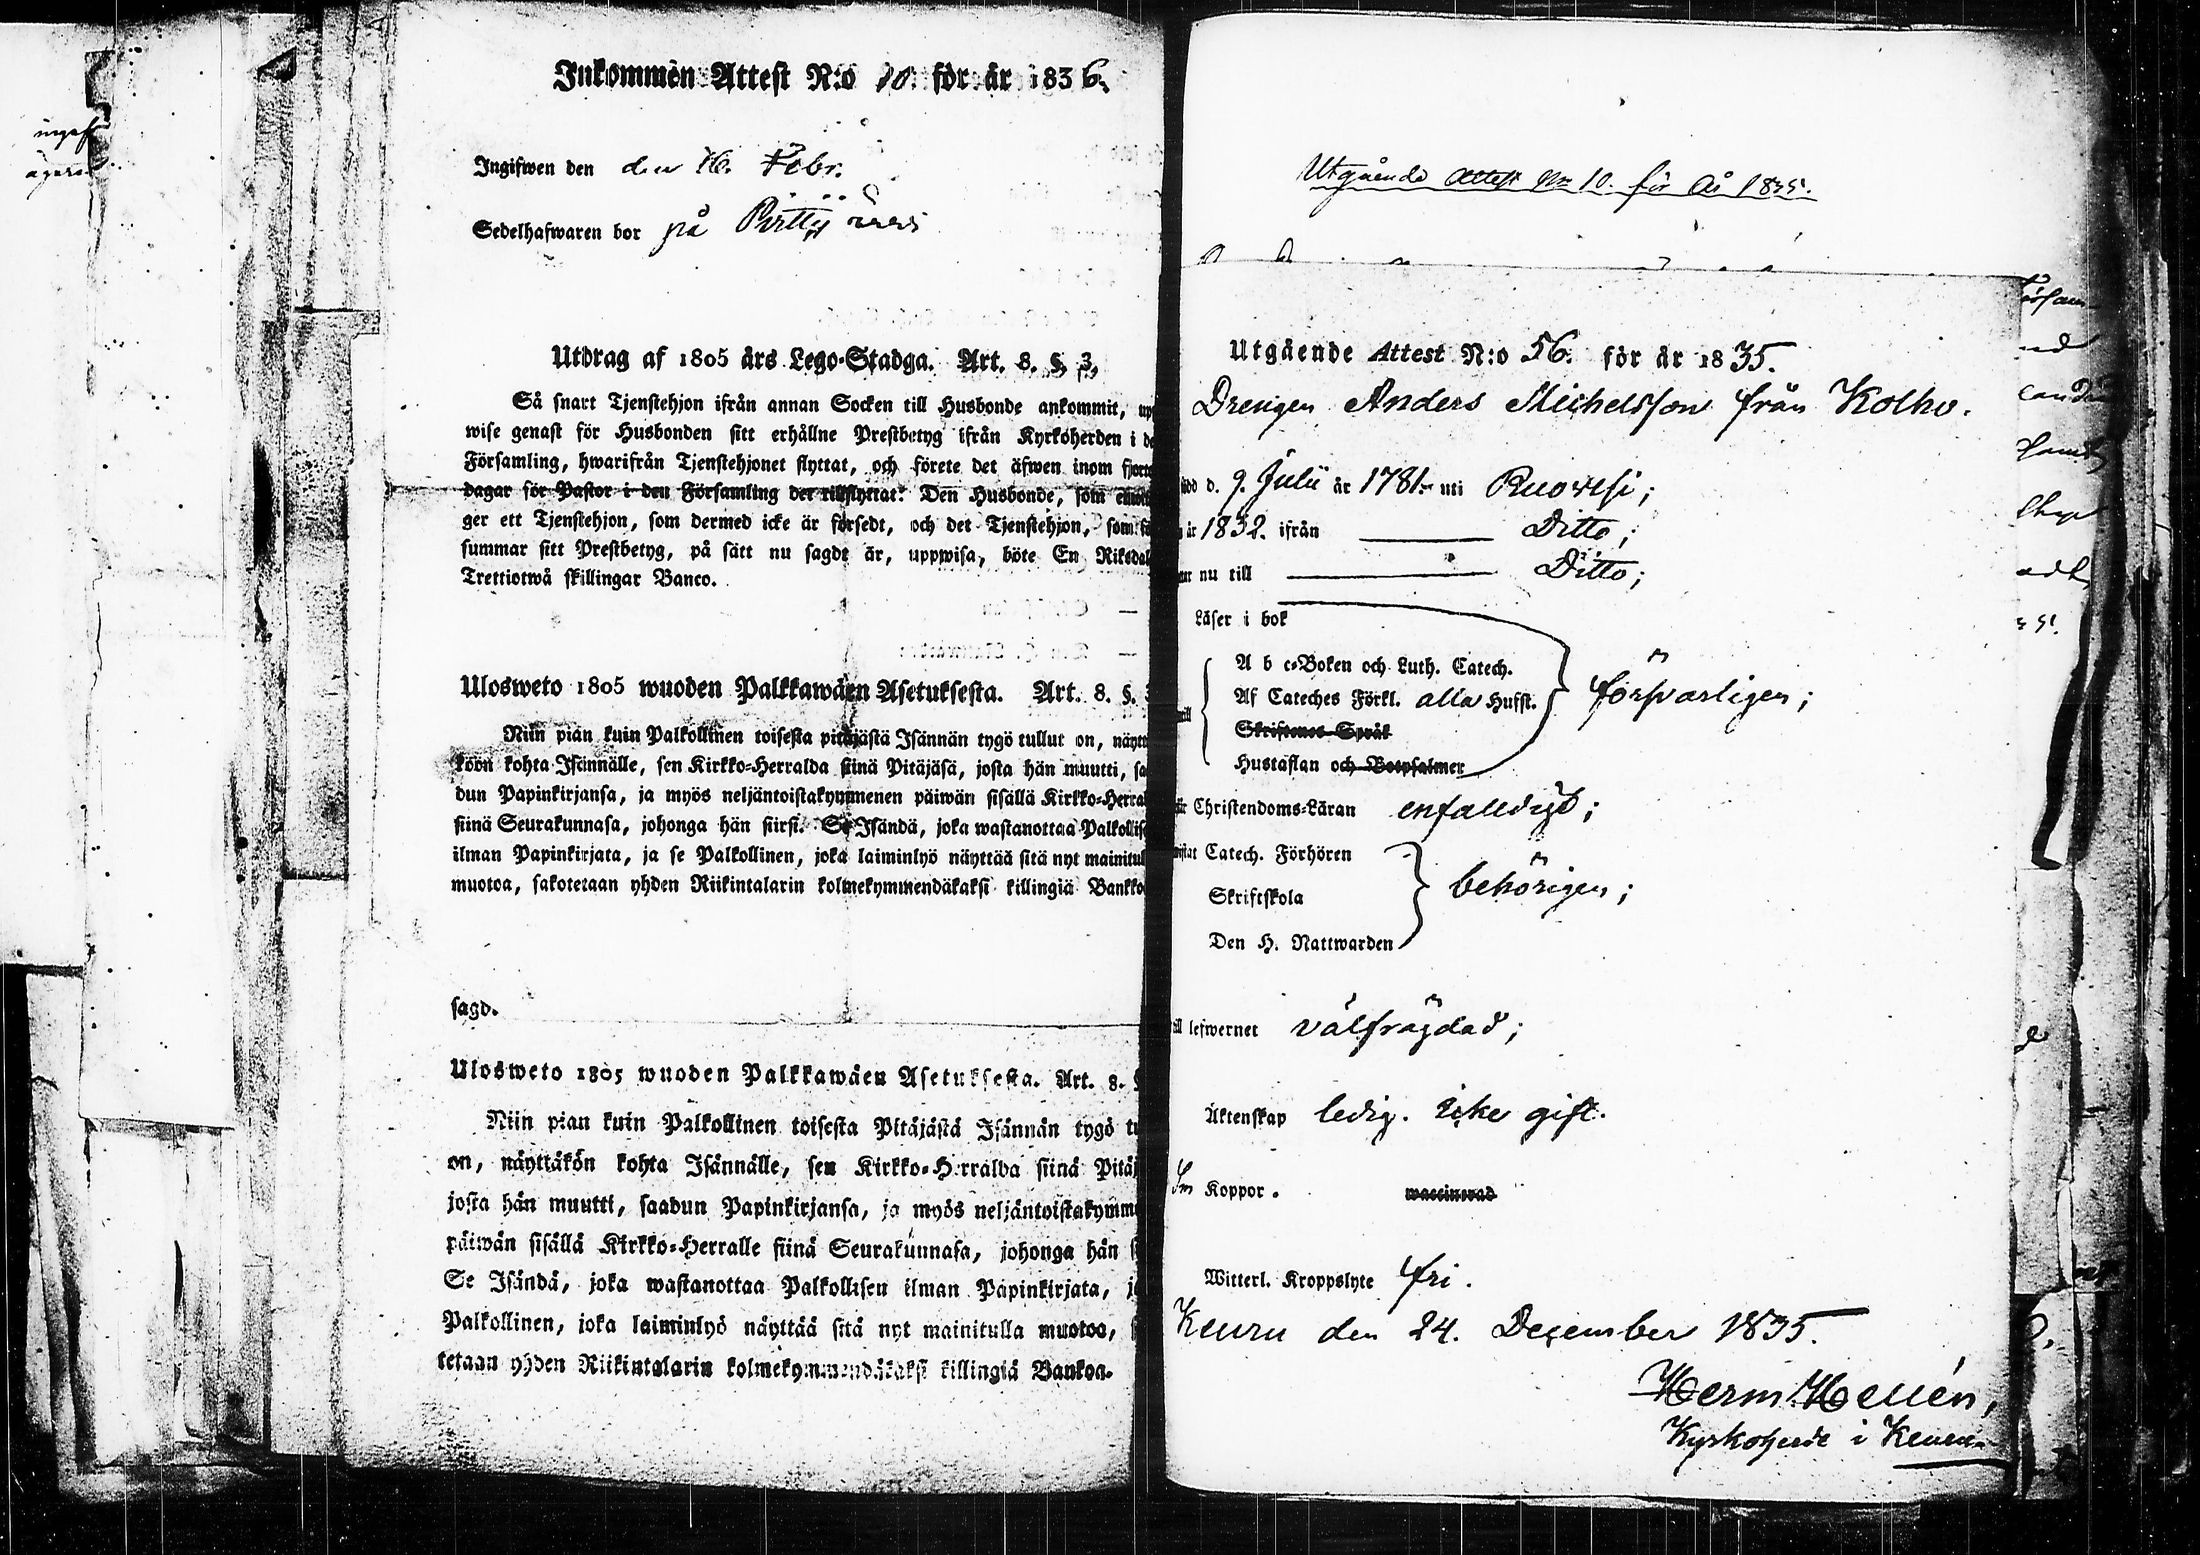 Inkommen Attest N:o 10. för år 1836.
Ingifwen den den 16. Febr.
Sedelhafwaren bor på
Utdrag af 1805 års Lego-Stadga. Art. 8. §. 3.
Så snart Tjenstehjon ifrån annan Socken till Husbonde ankommit, upp
wise genast för Husbonden sitt erhållne Prestbetyg ifrån Kyrkoherden i de
Församling, hwarifrån Tjenstehjonet flyttat, och förete det äfwen inom fjorto
dagar för Pastor i den Församling det tillflyttat. Den Husbonde, som
ger ett Tjenstehjon, som dermed icke är försedt, och det Tjenstehjon, som för
summar sitt Prestbetyg, på sätt nu sagdt är, uppwisa, böte En Riksdal
Trettiotwå skillingar Banco.
Ulosweto 1805 wuoden Palkkawäen Asetuksesta. Art. 8. §. 3
Niin pian kuin Palkollinen toisesta pitäjästä Isännän tygö tullut on, näyttä
köön kohta Isännälle, sen Kirkko-Herralda siinä Pitäjäsä, josta hän muutti, sa
dun Papinkirjansa, ja myös neljäntoistakymmenen päiwän sisällä Kirkko-Herra
siinä Seurakunnasa, johonga hän siirsi. Se Isändä, joka wastanottaa Palkollise
ilman Papinkirjata, ja se Palkollinen, joka laiminlyö näyttää sitä nyt mainitul
muotoa, sakotetaan yhden Riikintalarin kolmekymmendäkaksi killingiä Bankko
sagd.
Ulosweto 1805 wuoden Palkkawäen Asetuksesta. Art. 8. §
Niin pian kuin Palkollinen toisesta Pitäjästä Isännän tygö tu
on, näyttäkön kohta Isännälle, sen Kirkko-Herralda siinä Pitäj
josta hän muutti, saadun Papinkirjansa, ja myös neljäntoistakymme
päiwän sisällä Kirkko-Herralle siinä Seurakunnasa, johonga hän s
Se Isändä, joka wastanottaa Palkollisen ilman Papinkirjata, ja
Palkollinen, joka laiminlyö näyttää sitä nyt mainitulla muotoa, s
tetaan yhden Riikintalarin kolmekymmendäkaksi killingiä Bankoa.
Utgående Attest No 10. för År 1835.
Utgående Attest N:o 56. för år 1835.
Drengen Anders Michelsson från Kolho.
född d. 9. Julii år 1781. uti Ruovesi;
år 1832. ifrån Ditto;
nu till Ditto;
Läser i bok
A b c-Boken och Luth. Catech.
Af Cateches Förkl. alla Hufst. försvarligen;
Skriftenes Språk
Hustaflan och Botpsalmer
Christendoms-Läran enfalldigt;
Catech. Förhören
Skriftskola behörigen;
Den H. Nattwarden
till lefwernet välfrägdad;
Äktenskap ledig. Icke gift.
Koppor. waccinerad
Witterl. Kroppslyte fri.
Keuru den 24. December 1835.
Herm. Hellén,
Kyrkoherde i Keuru